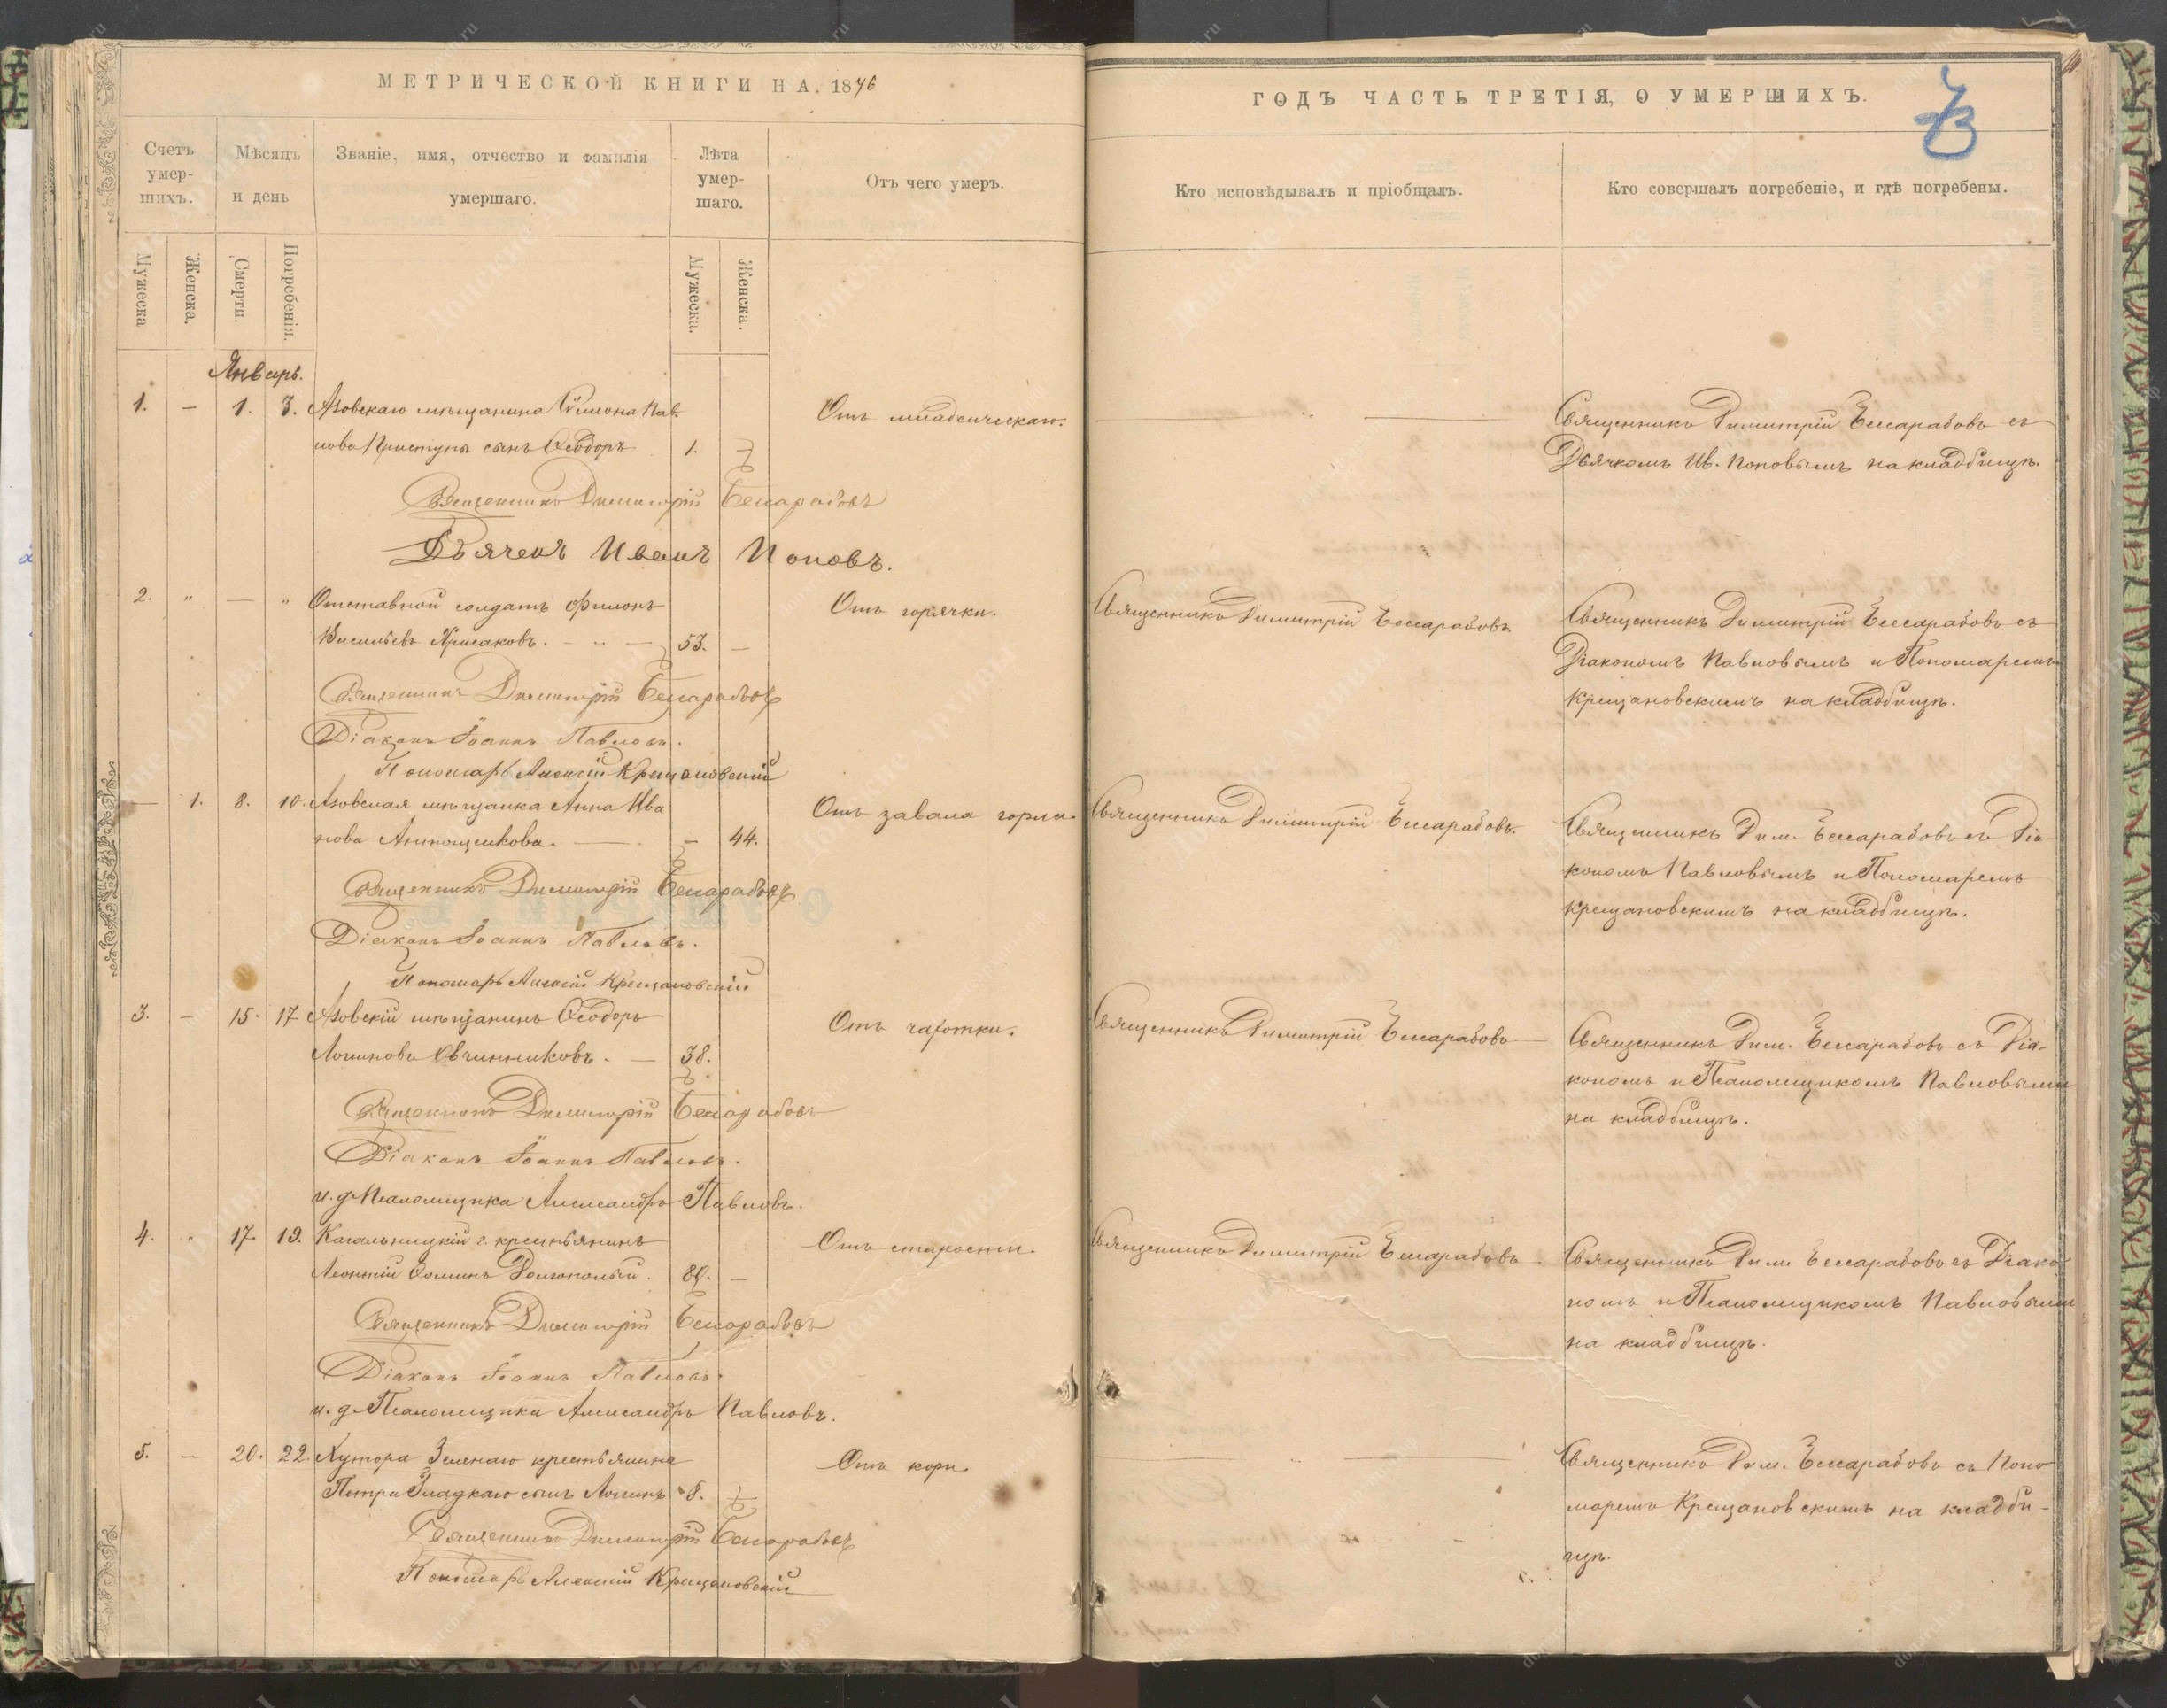 МЕТРИЧЕСКОЙ КНИГИ НА 1876
ГОДЪ ЧАСТЬ ТРЕТІЯ, О УМЕРШИХЪ.
Счетъ умершихъ.
Мѣсяцъ и день
Званіе, имя, отчество и фамилія умершаго.
Лѣта умершаго.
Отъ чего умеръ.
Кто исповѣдывалъ и пріобщалъ.
Кто совершалъ погребеніе, и гдѣ погребены.
Мужеска
Женска.
Смерти.
Погребенія.
Мужеска.
Женска.
Январь.
1. — 1. 3. Азовскаго мѣщанина Симеона Пав-
лова Приступы сынъ Ѳеодоръ 1.
Отъ младенческаго.
Священникъ Димитрій Бессарабовъ съ
Дьячкомъ Ив. Поповымъ на кладбищѣ.
Священникъ Димитрій Бессарабовъ
Дьячекъ Иванъ Поповъ.
2. " — " Отставной солдатъ Филонъ
Васильевъ 53. —
Отъ горячки.
Священникъ Димитрій Бессарабовъ.
Священникъ Димитрій Бессарабовъ съ
Діакономъ Павловымъ и Пономаремъ
Крещановскимъ на кладбищѣ.
Священникъ Димитрій Бессарабовъ
Діаконъ Іоаннъ Павловъ.
Пономарь Алексій Крещановскій
— 1. 8. 10. Азовская мѣщанка Анна Ива
нова — 44.
Отъ завала горла.
Священникъ Димитрій Бессарабовъ.
Священникъ Дим. Бессарабовъ съ Діа-
кономъ Павловымъ и Пономаремъ
Крещановскимъ на кладбищѣ.
Священникъ Димитрій Бессарабовъ
Діаконъ Іоаннъ Павловъ.
Пономарь Алексій Крещановскій
3. — 15. 17 Азовскій мѣщанинъ Ѳеодоръ
Логиновъ Овчинниковъ. — 38.
Отъ чахотки.
Священникъ Димитрій Бессарабовъ
Священникъ Дим. Бессарабовъ съ Діа-
кономъ и Псаломщикомъ Павловыми
на кладбищѣ.
Священникъ Димитрій Бессарабовъ
Діаконъ Іоаннъ Павловъ.
и. д. Псаломщика Александръ Павловъ.
4. 17. 19. Кагальницкій г. крестьянинъ
Леонтій Ѳоминъ 80. —
Отъ старости.
Священникъ Димитрій Бессарабовъ
Священникъ Дим. Бессарабовъ съ Діако-
номъ и Псаломщикомъ Павловыми
на кладбищѣ.
Священникъ Димитрій Бессарабовъ
Діаконъ Іоаннъ Павловъ.
и. д. Псаломщика Александръ Павловъ.
5. — 20. 22. Хутора Зеленаго крестьянина
Петра Гладкаго сынъ Логинъ 8.
Отъ кори.
Священникъ Дим. Бессарабовъ съ Поно
маремъ Крещановскимъ на кладби-
щѣ.
Священникъ Димитрій Бессарабовъ
Пономарь Алексій Крещановскій